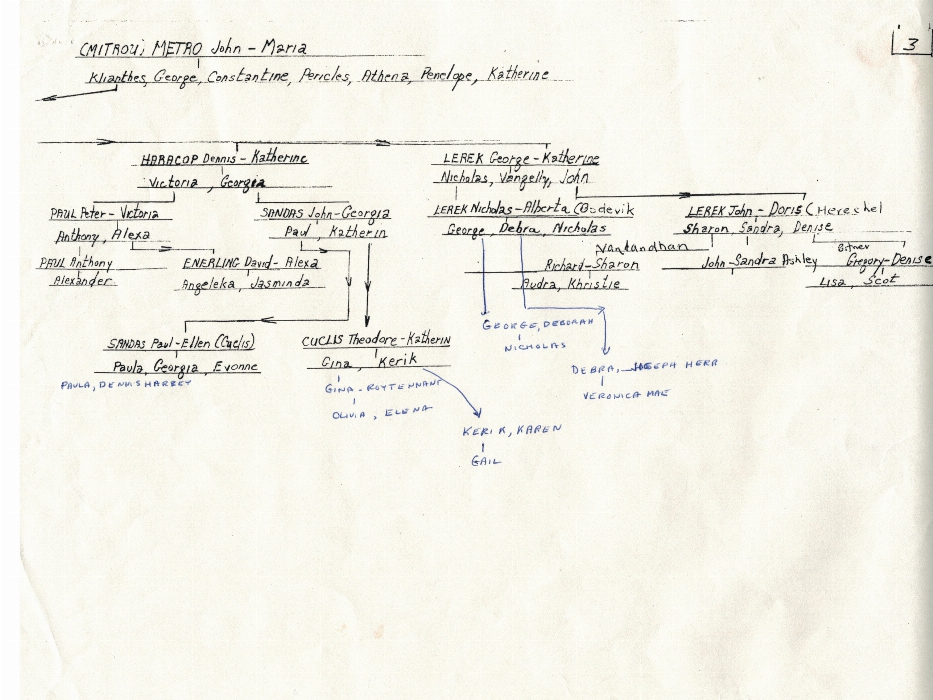 3
(MITROU) METRO John - Maria
Klianthes, George, Constantine, Pericles, Athena, Penelope, Katherine
HARACOP Dennis - Katherine
Victoria, Georgia
LEREK George - Katherine
Nicholas, Vangelly, John
PAUL Peter - Victoria
Anthony, Alexa
SANDAS John - Georgia
Paul, Katherin
LEREK Nicholas - Alberta
George, Debra, Nicholas
LEREK John - Doris (Hereshel
Sharon, Sandra, Denise
PAUL Anthony
Alexander
ENERLING David - Alexa
Angeleka, Jasminda
Vantandhan
Richard - Sharon
Audra, Khristie
John - Sandra Ashley
Bitner
Gregory - Denise
Lisa, Scot
SANDAS Paul - Ellen (Cuclis)
Paula, Georgia, Evonne
PAULA, DENNIS HARREY
CUCLIS Theodore - Katherin
Gina, Kerik
GINA - ROYTENNANT
OLIVIA, ELENA
KERIK, KAREN
GAIL
GEORGE, DEBORAH
NICHOLAS
DEBRA, JOSEPH HERR
VERONICA MAE